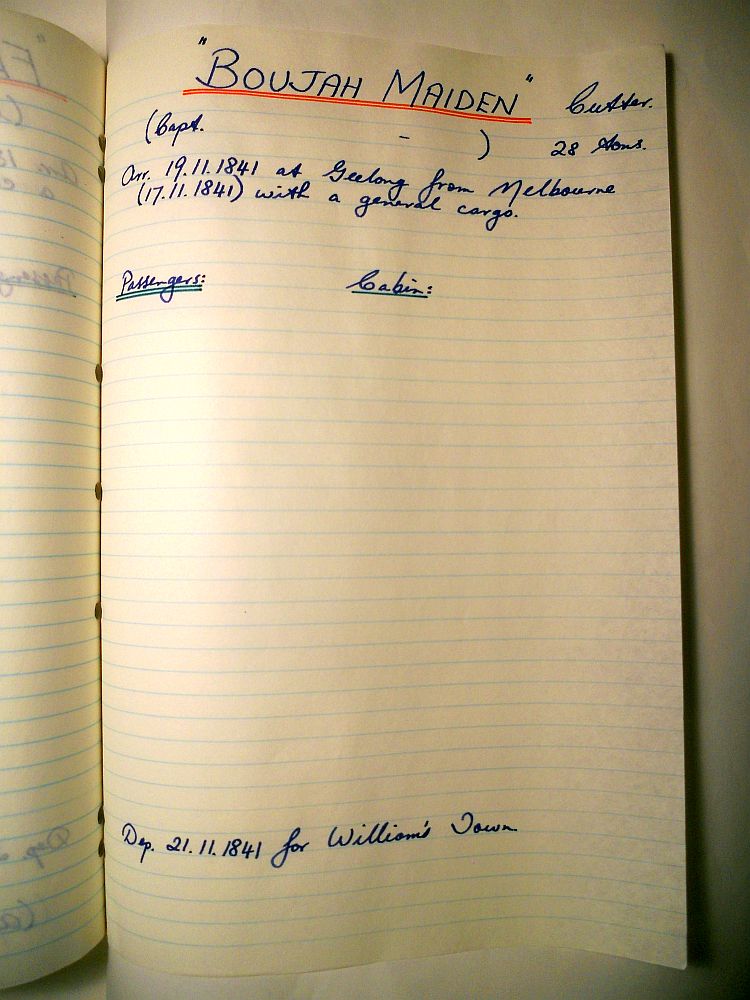 "BOUJAH MAIDEN" Cutter.
(Capt. - ) 28 tons.
Arr. 19.11.1841 at Geelong from Melbourne
(17.11.1841) with a general cargo.
Passengers: Cabin:
Dep. 21.11.1841 for William's Town